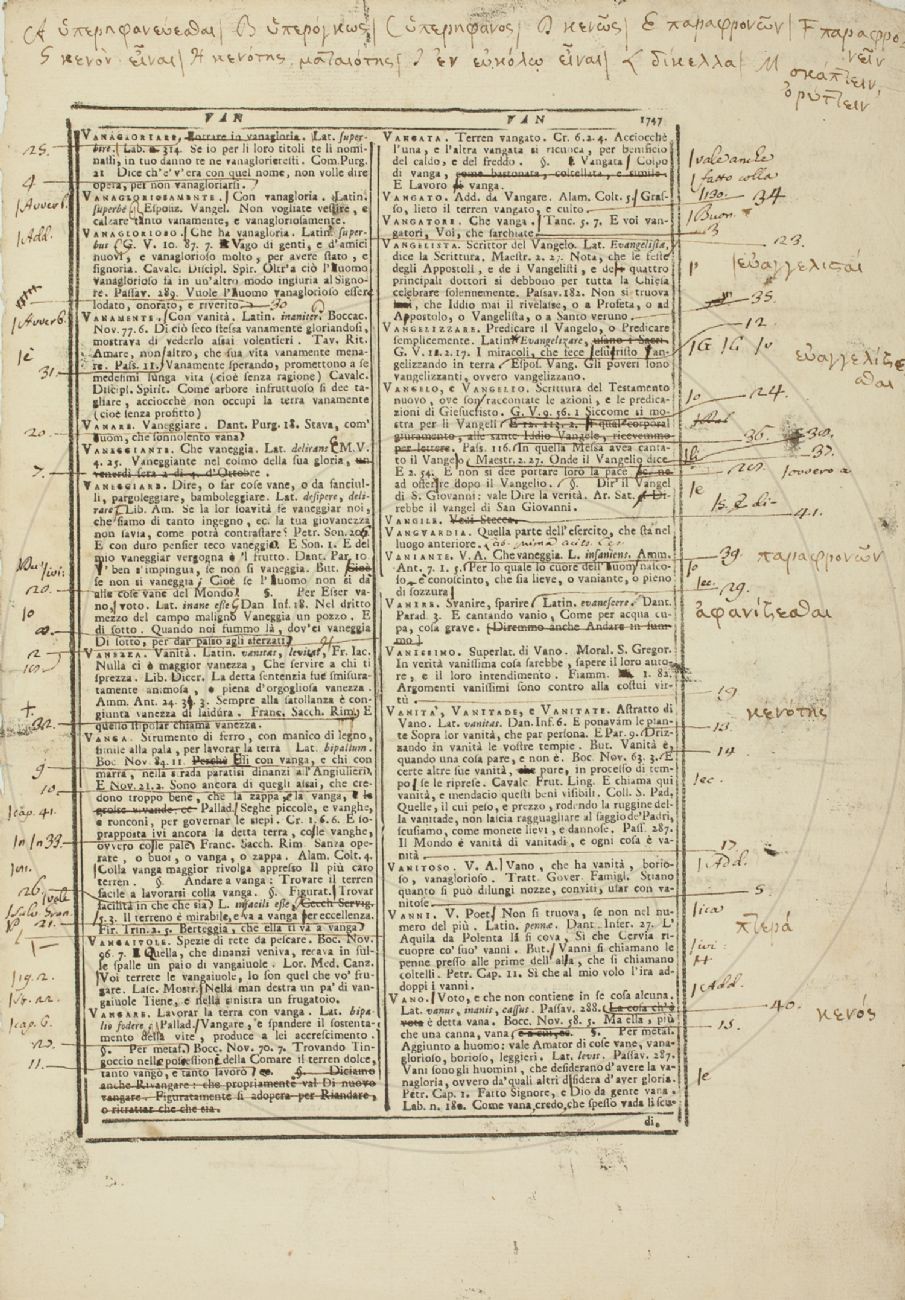 A ὑπερηφανεύεσθαι B ὑπερόγκως C ὑπερήφανος D κενῶς E παραφρονῶν F παραφρο-
νεῖν
G κενὸν εἶναι H κενότης, ματαιότης I ἐν εὐκόλῳ εἶναι L δίκελλα M
σκάπτειν,
ὀρύττειν
VAN VAN 1747
VANAGLORIARE. Entrare in vanagloria. Lat. super-
bire. Lab. 314. Se io per li loro titoli te li nomi-
nassi, in tuo danno te ne vanaglorieresti. Com. Purg.
21 Dice ch'e' v'era con quel nome, non volle dire
opera, per non vanagloriarsi.
VANAGLORIOSAMENTE. Con vanagloria. Latin.
superbè. Espoiz. Vangel. Non vogliate vestire, e
calzare tanto vanamente, e vanagloriosamente.
VANAGLORIOSO. Che ha vanagloria. Latin. super-
bus G. V. 10. 87. 7. Vago di genti, e d'amici
nuovi, e vanaglorioso molto, per avere stato, e
signoria. Cavalc. Discipl. Spir. Oltr'a ciò l'uomo
vanaglorioso fa in un'altro modo ingiuria al Signo-
re. Passav. 289. Vuole l'uomo vanaglorioso essere
lodato, onorato, e riverito.
VANAMENTE. Con vanità. Latin. inaniter. Boccac.
Nov. 77. 6. Di ciò seco stessa vanamente gloriandosi,
mostrava di vederlo assai volentieri. Tav. Rit.
Amare, non altro, che sua vita vanamente mena-
re. Pass. 11. Vanamente sperando, promettono a se
medesimi lunga vita (cioè senza ragione) Cavalc.
Discipl. Spirit. Come arbore infruttuoso si dee ta-
gliare, acciocchè non occupi la terra vanamente
(cioè senza profitto)
VANARE. Vaneggiare. Dant. Purg. 18. Stava, com'
uom, che sonnolento vana.
VANEGGIANTE. Che vaneggia. Lat. delirans M. V.
4. 25. Vaneggiante nel colmo della sua gloria, un
venerdì sera a dì 4. d'Ottobre.
VANEGGIARE. Dire, o far cose vane, o da fanciul-
li, pargoleggiare, bamboleggiare. Lat. desipere, deli-
rare. Lib. Am. Se la lor soavità fe vaneggiar noi,
che siamo di tanto ingegno, ec. la tua giovanezza
non savia, come potrà contrastare? Petr. Son. 206.
E con duro pensier teco vaneggio. E Son. 1. E del
mio vaneggiar vergogna è 'l frutto. Dant. Par. 10.
V' ben s'impingua, se non si vaneggia. But. Cioè
se non si vaneggia; Cioè se l'uomo non si dà
alle cose vane del Mondo. §. Per Esser va-
no, voto. Lat. inane esse. Dan Inf. 18. Nel dritto
mezzo del campo maligno Vaneggia un pozzo. E
di sotto. Quando noi fummo là, dov'ei vaneggia
Di sotto, per dar passo agli sferzati.
VANEZZA. Vanità. Latin. vanitas, levitas, Fr. Iac.
Nulla ci è maggior vanezza, Che servire a chi ti
sprezza. Lib. Dicer. La detta sentenzia fue smisura-
tamente animosa, e piena d'orgogliosa vanezza.
Amm. Ant. 24. 3. 3. Sempre alla satollanza è con-
giunta vanezza di laidura. Franc. Sacch. Rim. E
quello stipolar chiama vanezza.
VANGA. Strumento di ferro, con manico di legno,
simile alla pala, per lavorar la terra Lat. bipallum.
Boc Nov 84. 11. Perchè Gli con vanga, e chi con
marra, nella strada paratisi dinanzi all'Angiulieri.
E Nov. 21. 2. Sono ancora di quegli assai, che cre-
dono troppo bene, che la zappa, e la vanga, e le
grosse vivande, ec Pallad. Seghe piccole, e vanghe,
e ronconi, per governar le siepi. Cr. 1. 6. 6. E so-
prapposta ivi ancora la detta terra, colle vanghe,
ovvero colle pale. Franc. Sacch. Rim. Sanza ope-
rare, o buoi, o vanga, o zappa. Alam. Colt. 4.
Colla vanga maggior rivolga appresso Il più caro
terren. §. Andare a vanga: Trovare il terren
facile a lavorarsi colla vanga. §. Figurat. Trovar
facilità in che che sia. L. infacili esse,
5. 3. Il terreno è mirabile, e va a vanga per eccellenza.
Fir. Trin. 2. 5. Berteggia, che ella ti va a vanga.
VANGAIUOLE. Spezie di rete da pescare. Boc. Nov.
96. 7. Quella, che dinanzi veniva, recava in sul-
le spalle un paio di vangaiuole. Lor. Med. Canz.
Voi terrete le vangaiuole, Io son quel che vo' fru-
gare. Lasc. Mostr. Nella man destra un pa' di van-
gaiuole Tiene, e nella sinistra un frugatoio.
VANGARE. Lavorar la terra con vanga. Lat. bipa-
lio fodere. Pallad. Vangare, e spandere il sostenta-
mento della vite, produce a lei accrescimento.
§. Per metaf. Bocc Nov. 70. 7. Trovando Tin-
goccio nelle possessioni della Comare il terren dolce,
tanto vangò, e tanto lavorò, ec. §. Diciamo
anche Rivangare: che propriamente val Di nuovo
vangare. Figuratamente si adopera per Riandare,
o ritrattar che che sia.
VANGATA. Terren vangato. Cr. 6. 2. 4. Acciocchè
l'una, e l'altra vangata si ricuoca, per benificio
del caldo, e del freddo. §. Vangata Colpo
di vanga, come bastonata, coltellata, e simile.
E Lavoro di vanga.
VANGATO. Add. da Vangare. Alam. Colt. 5. Gras-
so, lieto il terren vangato, e culto.
VANGATORE. Che vanga. Tanc. 5. 7. E voi van-
gatori, Voi, che sarchiate.
VANGELISTA. Scrittor del Vangelo. Lat. Evangelista,
dice la Scrittura. Maestr. 2. 27. Nota, che le feste
degli Appostoli, e de i Vangelisti, e de quattro
principali dottori si debbono per tutta la Chiesa
celebrare solennemente. Passav. 182. Non si truova
mai, che Iddio mai il rivelasse, o a Profeta, o ad
Appostolo, o Vangelista, o a Santo veruno.
VANGELIZZARE. Predicare il Vangelo, o Predicare
semplicemente. Latin Evangelizare, usano i Sacri.
G. V. 11. 2. 17. I miracoli, che fece Iesù Cristo Van-
gelizzando in terra. Espos. Vang. Gli poveri sono
vangelizzanti, ovvero vangelizzano.
VANGELO, e VANGELIO. Scrittura del Testamento
nuovo, ove son raccontate le azioni, e le predica-
zioni di Giesucristo. G. V. 9. 56. 1 Siccome si mo-
stra per li Vangeli E 12. 113. 2. il qual corporal
giuramento, alle sante Iddio Vangele, ricevemmo
per lettere. Pass. 116. In quella Messa avea canta-
to il Vangelo. Maestr. 2. 27. Onde il Vangelio dice
E 2. 54. E non si dee portare loro la pace se no
ad offerire dopo il Vangelio. §. Dir il Vangel
di S. Giovanni: vale Dire la verità. Ar. Sat. Di-
rebbe il vangel di San Giovanni.
VANGILE. Vedi Stecca.
VANGUARDIA. Quella parte dell'esercito, che sta nel
luogo anteriore.
VANIANTE. V. A. Che vaneggia. L. insaniens. Amm.
Ant. 7. 1. 5. Per lo quale lo cuore dell'uom nasco-
so è conoscinto, che sia lieve, o vaniante, o pieno
di sozzura.
VANIRE. Svanire, sparire. Latin. evanescere. Dant.
Parad. 3. E cantando vanio, Come per acqua cu-
pa, cosa grave. Diremmo anche Andare in fum-
mo.
VANISSIMO. Superlat. di Vano. Moral. S. Gregor.
In verità vanissima cosa sarebbe, sapere il loro auto-
re, e il loro intendimento. Fiamm. 1. 82.
Argomenti vanissimi sono contro alla costui vir-
tù.
VANITA', VANITADE, e VANITATE. Astratto di
Vano. Lat. vanitas. Dan. Inf. 6. E ponavàm le pian-
te Sopra lor vanità, che par persona. E Par. 9. Driz-
zando in vanità le vostre tempie. But. Vanità è,
quando una cosa pare, e non è. Boc. Nov. 63. 3. E
certe altre sue vanità, che pure, in processo di tem-
po se le riprese. Cavalc Frut. Ling. E chiama qui
vanità, e mendacio questi beni visibili. Coll. S. Pad,
Quelle, il cui peso, e prezzo, rodendo la ruggine del-
la vanitade, non lascia ragguagliare al saggio de' Padri,
scusiamo, come monete lievi, e dannose. Pass. 287.
Il Mondo è vanità di vanitadi, e ogni cosa è va-
nità.
VANITOSO. V. A. Vano, che ha vanità, borio-
so, vanaglorioso. Tratt. Gover. Famigl. Stiano
quanto si può dilungi nozze, conviti, usar con va-
nitose.
VANNI. V. Poet. Non si truova, se non nel nu-
mero del più. Latin. pennæ. Dant. Infer. 27. L'
Aquila da Polenta là si cova, Sì che Cervia ri-
cuopre co' suo' vanni. But. Vanni si chiamano le
penne presso alle prime dell'alia, che si chiamano
coltelli. Petr. Cap. 11. Sì che al mio volo l'ira ad-
doppi i vanni.
VANO. Voto, e che non contiene in se cosa alcuna.
Lat. vanus, inanis, cassus. Passav. 288. La cosa ch'è
vota è detta vana. Bocc. Nov. 58. 5. Ma ella, più
che una canna, vana, §. Per metaf.
Aggiunto a huomo: vale Amator di cose vane, vana-
glorioso, borioso, leggieri. Lat. levis. Passav. 287.
Vani sono gli huomini, che desiderano d'avere la va-
nagloria, ovvero da' quali altri disidera d'aver gloria.
Petr. Cap. 1. Fatto Signore, e Dio da gente vana.
Lab. n. 180. Come vana, credo, che spesso vada li scu-
di.
25.
4
Avverb.
Add.
Avverb.
31.
20.
7.
20.
2
32.
9
10.
cap. 41.
26.
21.
cap. 6.
11.
vale anche
fatto colla
34
3
23.
εὐαγγελισταί
35.
12.
εὐαγγελίζε-
σθαι
24.
36. 38.
37.
ovvero a
41.
39. παραφρονῶν
29.
ἀφανίζεσθαι
19
κενότης
13.
14
17.
Add.
5.
πτερά
Add.
40.
κενός
15.